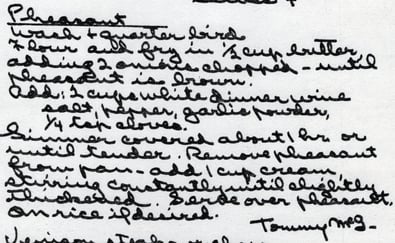 Pheasant
Wash + quarter bird
Flour and fry in ½ cup butter,
adding 2 onions chopped - until
pheasant is brown.
Add: 2 cups white dinner wine
salt, pepper, garlic powder,
¼ tsp cloves.
Simmer covered about 1 hr. or
until tender. Remove pheasant
from pan - add 1 cup cream
stirring constantly until slightly
thickened. Serve over pheasant,
on rice if desired.
Tommy McG-
Venison steaks